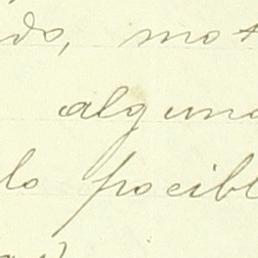 do, mot
alguna
lo pocibl